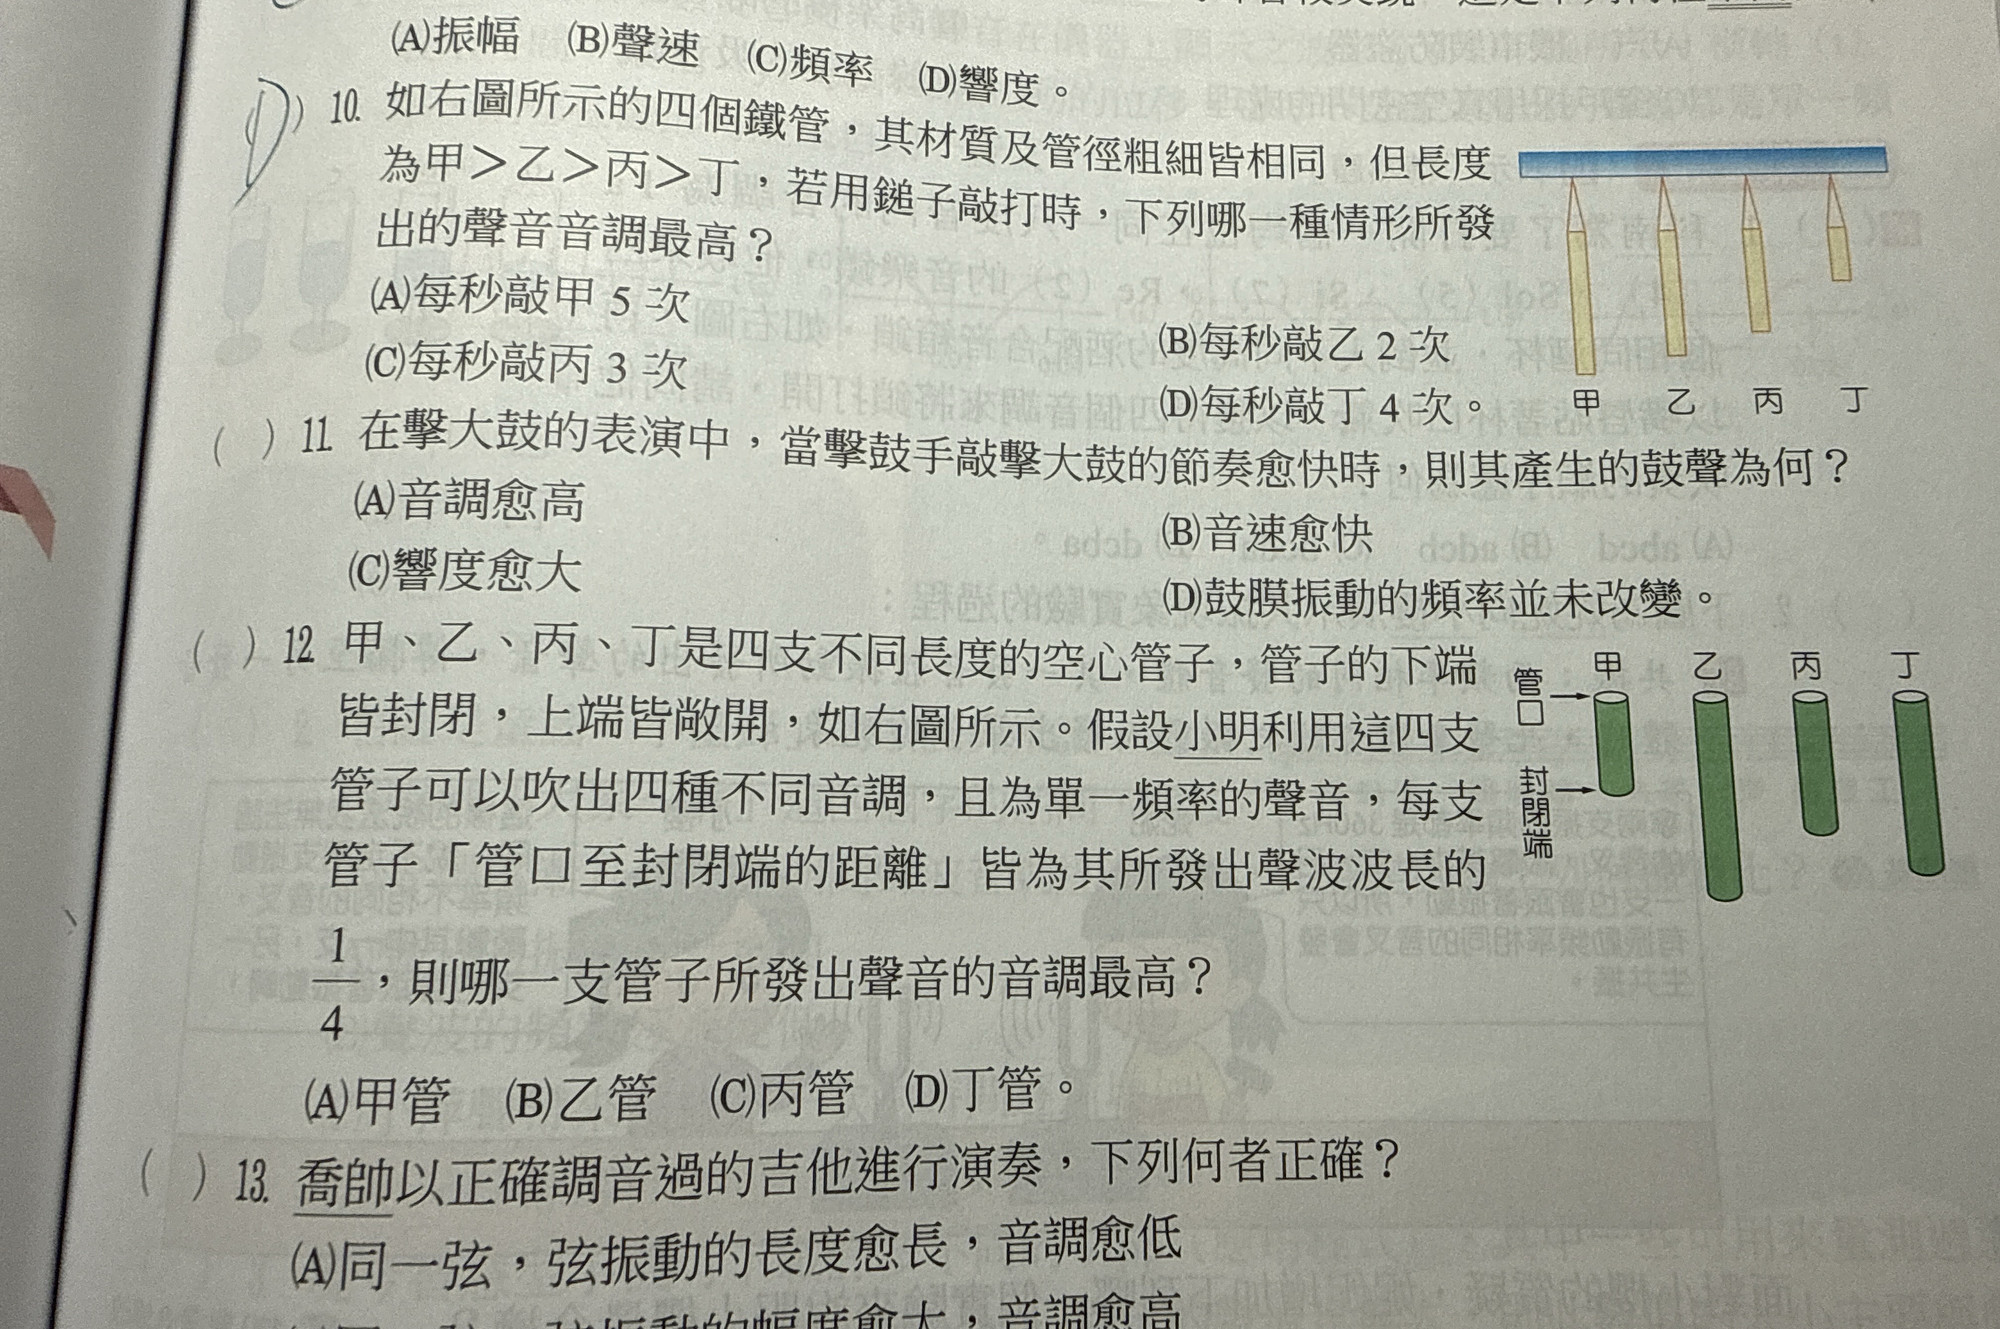 (A)振幅 (B)聲速 (C)頻率 (D)響度。
(D) 10. 如右圖所示的四個鐵管，其材質及管徑粗細皆相同，但長度
為甲＞乙＞丙＞丁，若用鎚子敲打時，下列哪一種情形所發
出的聲音音調最高？
(A)每秒敲甲 5 次 (B)每秒敲乙 2 次
(C)每秒敲丙 3 次 (D)每秒敲丁 4 次。
甲 乙 丙 丁
( ) 11. 在擊大鼓的表演中，當擊鼓手敲擊大鼓的節奏愈快時，則其產生的鼓聲為何？
(A)音調愈高 (B)音速愈快
(C)響度愈大 (D)鼓膜振動的頻率並未改變。
( ) 12. 甲、乙、丙、丁是四支不同長度的空心管子，管子的下端
皆封閉，上端皆敞開，如右圖所示。假設小明利用這四支
管子可以吹出四種不同音調，且為單一頻率的聲音，每支
管子「管口至封閉端的距離」皆為其所發出聲波波長的
1/4，則哪一支管子所發出聲音的音調最高？
(A)甲管 (B)乙管 (C)丙管 (D)丁管。
甲 乙 丙 丁
管口
封閉端
( ) 13. 喬帥以正確調音過的吉他進行演奏，下列何者正確？
(A)同一弦，弦振動的長度愈長，音調愈低
弦振動的幅度愈大，音調愈高